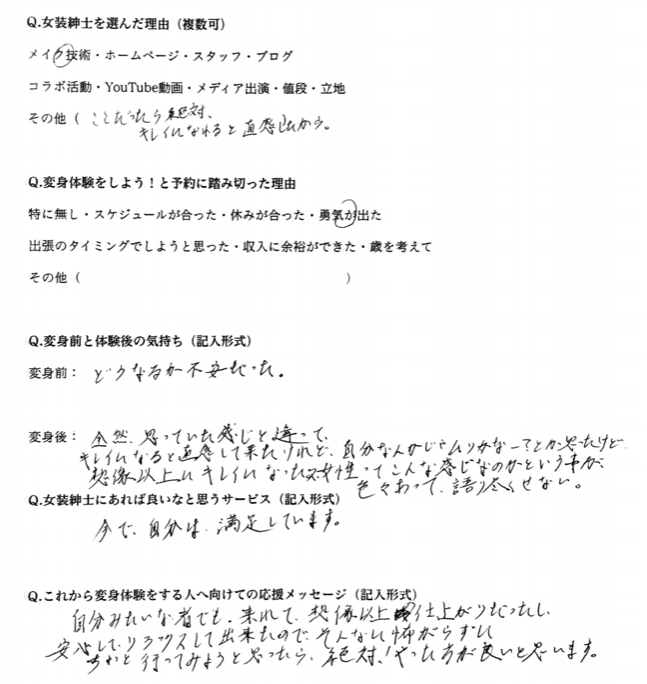 Q.女装紳士を選んだ理由（複数可）
メイク技術・ホームページ・スタッフ・ブログ
コラボ活動・YouTube動画・メディア出演・値段・立地
その他（ ここだったら絶対、
キレイになれると直感出から。
Q.変身体験をしよう！と予約に踏み切った理由
特に無し・スケジュールが合った・休みが合った・勇気が出た
出張のタイミングでしようと思った・収入に余裕ができた・歳を考えて
その他（ ）
Q.変身前と体験後の気持ち（記入形式）
変身前： どうなるか不安だった。
変身後： 全然、思っていた感じと違って、
キレイになると直感して来たけれど、自分なんかじゃムリかなー？とか思ったけど
想像以上にキレイになった。女性ってこんな感じなのかという事が、
色々あって、語り尽くせない。
Q.女装紳士にあれば良いなと思うサービス（記入形式）
今で、自分は、満足しています。
Q.これから変身体験をする人へ向けての応援メッセージ（記入形式）
自分みたいな者でも、来れて、想像以上 仕上がりだったし、
安心して、リラックスして出来たので、そんなに怖がらずに
行ってみようと思ったら、絶対、やった方が良いと思います。